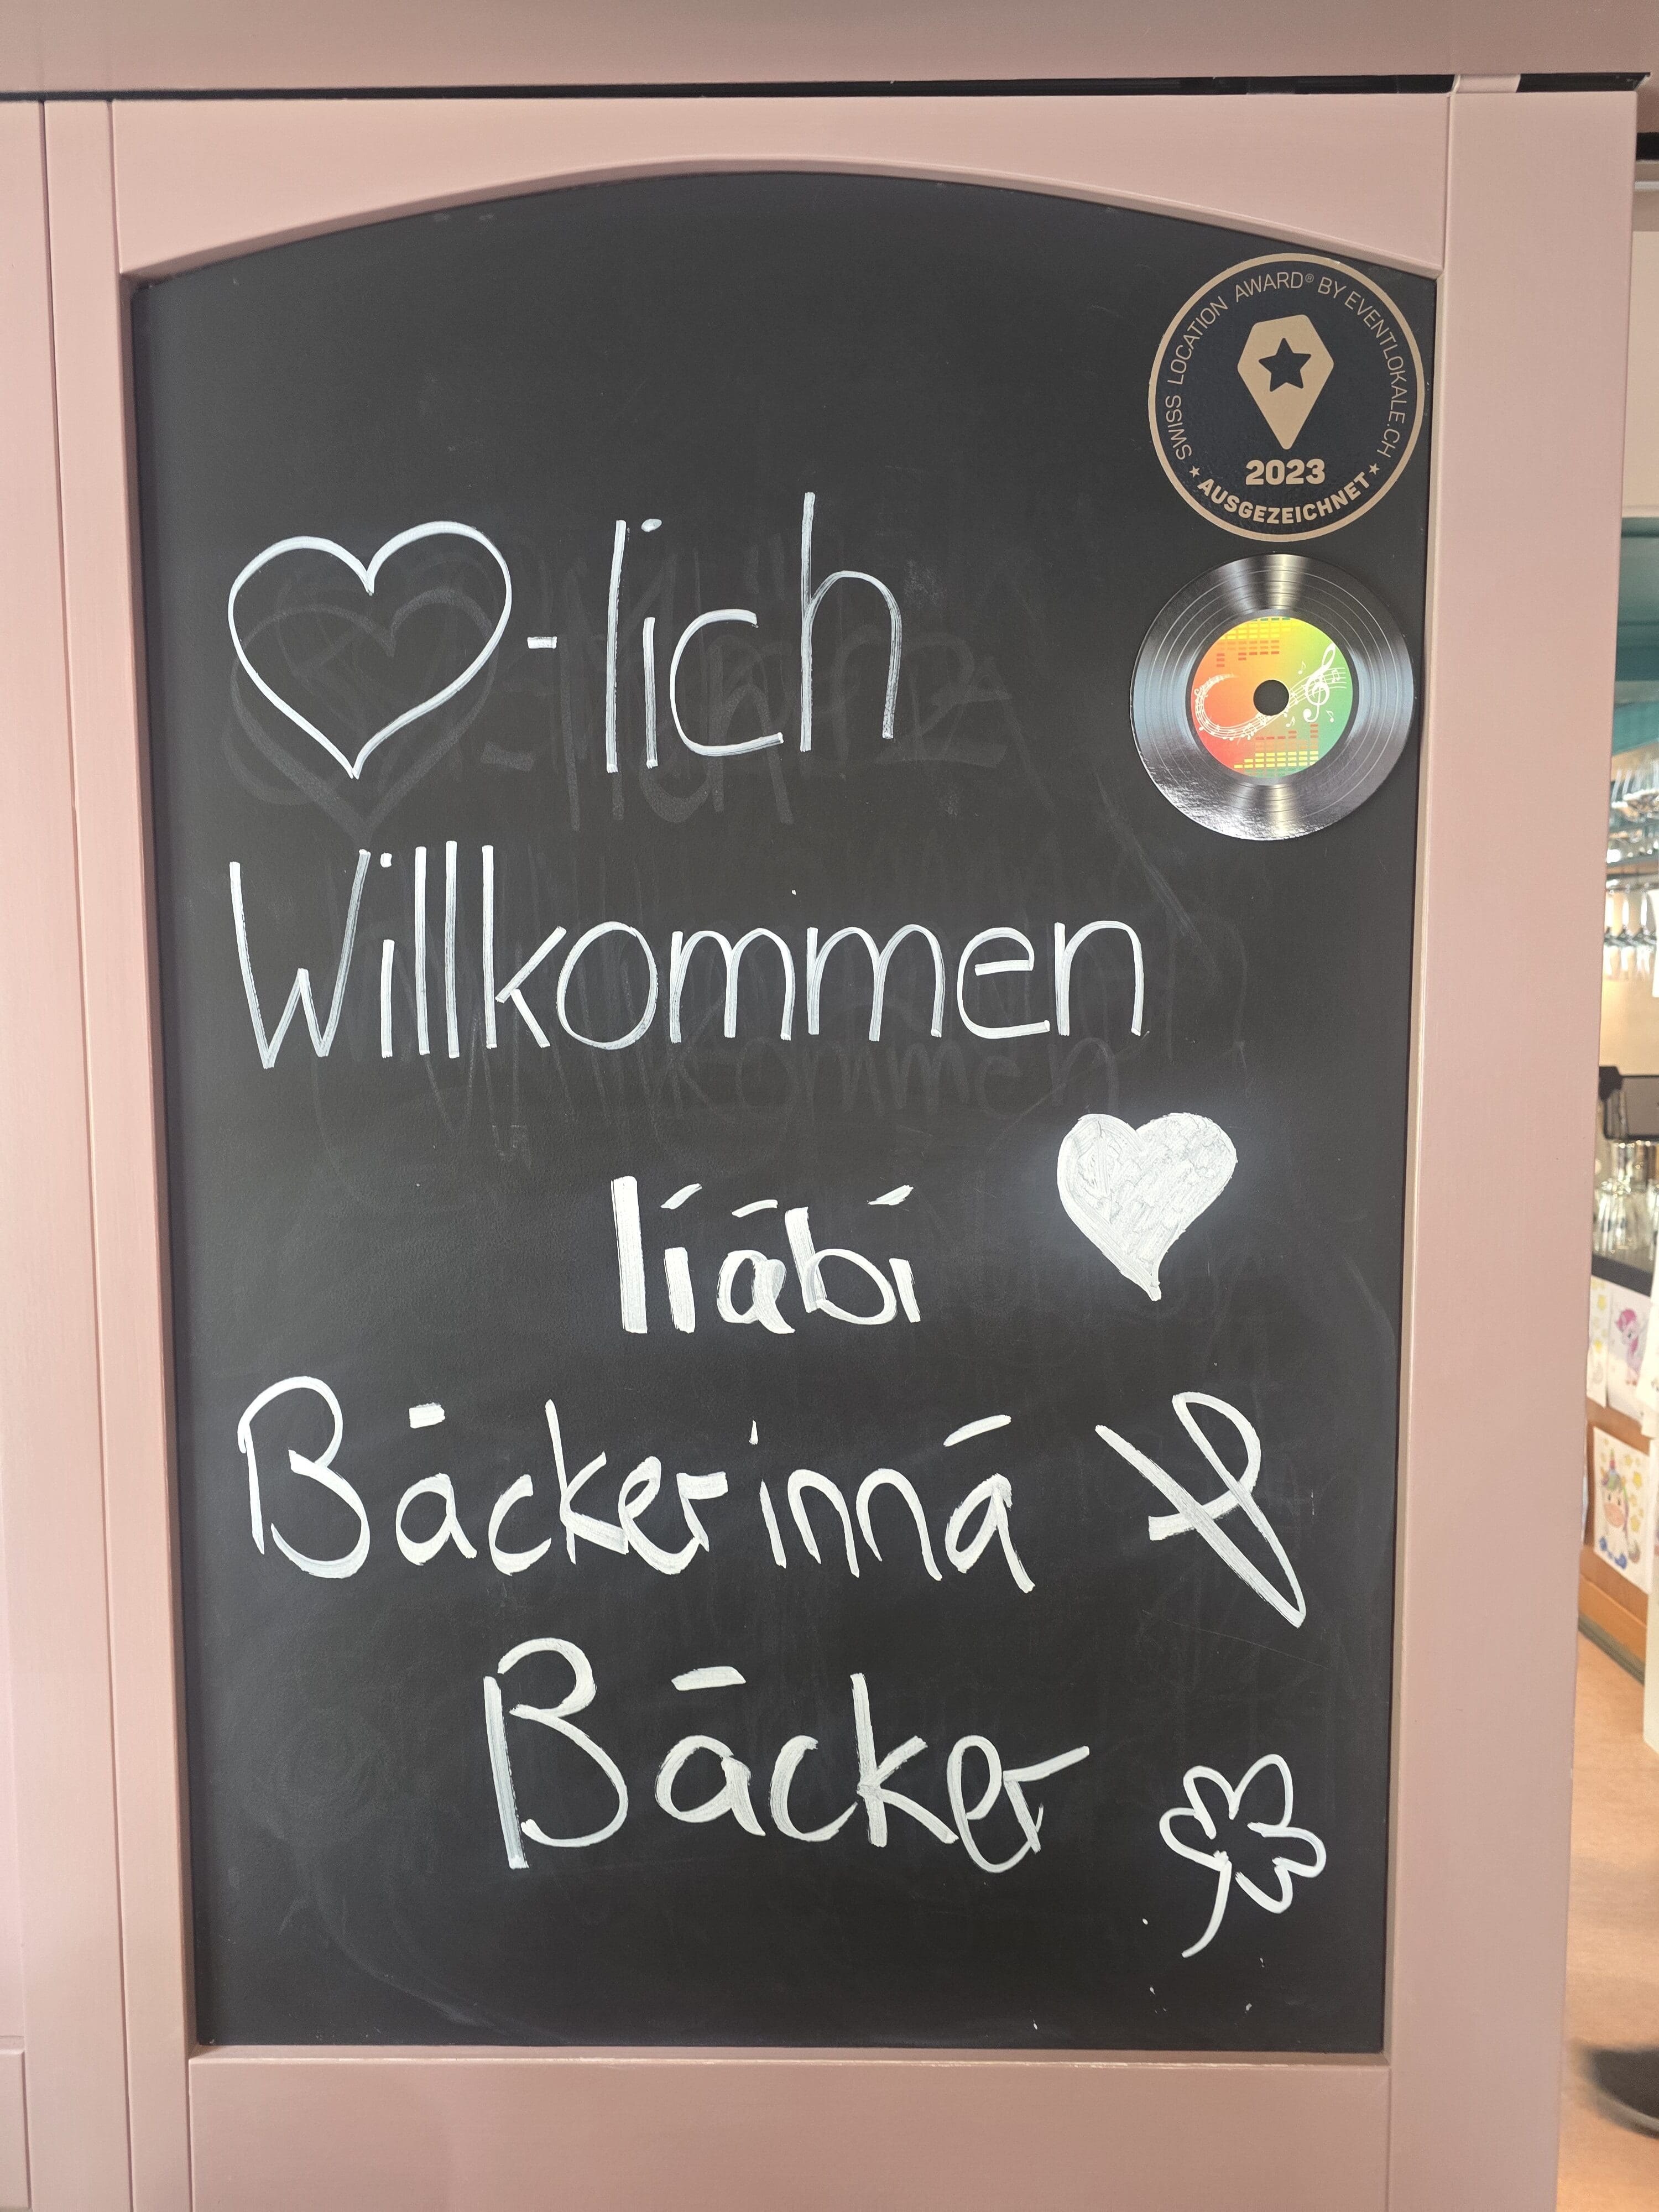 SWISS LOCATION AWARD® BY EVENTLOKALE.CH
2023
★ AUSGEZEICHNET ★
♡-lich
Willkommen
liäbi
Bäckerinnä &
Bäcker